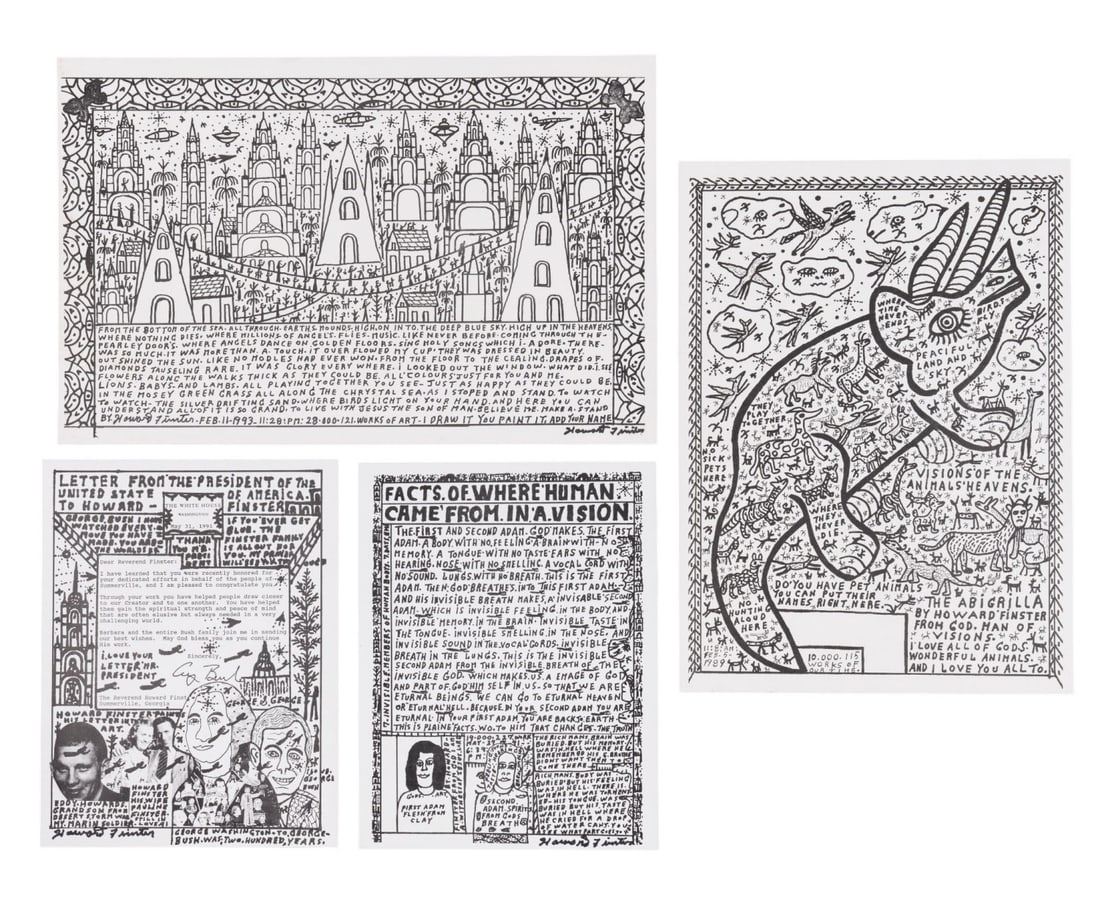 FROM THE BOTTOM OF THE SEA. ALL THROUGH. EARTHS MOUNDS. HIGH. ON IN TO. THE DEEP BLUE SKY. HIGH UP IN THE HEAVENS
WHERE NOTHING DIES. WHERE MILLIONS OF ANGELS. FLIES. MUSIC. LIKE NEVER BEFORE. COMING THROUGH THE-
PEARLEY DOORS. WHERE ANGELS DANCE ON GOLDEN FLOORS. SING HOLY SONGS WHICH i. ADORE. THERE-
WAS SO MUCH. IT WAS MORE THAN. A. TOUCH. IT OVER FLOWED MY CUP. THEY WAS DRESSED IN BEAUTY.
OUT SHINED THE SUN. LIKE NO MODLES HAD EVER WON. FROM THE FLOOR TO THE CEALING. DRAPES OF-
DIAMONDS TAUSELING RARE. IT WAS GLORY EVERY WHERE. i LOOKED OUT THE WINDOW. WHAT DID. i. SEE
FLOWERS ALONG THE WALKS THICK AS THEY COULD BE. ALL COLOURS JUST FOR YOU AND ME.
LIONS. BABYS. AND LAMBS. ALL PLAYING TOGETHER YOU SEE. JUST AS HAPPY AS THEY COULD BE.
IN THE MOSEY GREEN GRASS ALL ALONG THE CHRYSTAL SEA. AS I STOPED AND STAND. TO WATCH
TO WATCH- THE SILVER DRIFTING SAND. WHERE BIRDS LIGHT ON YOUR HAND. AND HERE YOU CAN
UNDERSTAND ALL OF IT IS SO GRAND. TO LIVE WITH JESUS THE SON OF MAN. BELIEVE ME. MAKE. A. STAND
BY. Howard Finster. FEB. 11-1993. 11:28: PM: 28-000-121. WORKS OF ART- I DRAW IT YOU PAINT IT. ADD YOUR NAME
Howard Finster
WHERE
TIME
NEVER
ENDS
BIRDS.
PEACIFUL
LAND AND
SKY
THEY
PLAY
TOGETHER
NO
SICK
PETS
HERE
VISIONS OF THE
ANIMALS HEAVENS.
WHERE
THEY
NEVER
DIE.
DO YOU HAVE PET ANIMALS
YOU CAN PUT THEIR
NAMES RIGHT HERE.
NO
HUNTIN
ALOUD
HERE
THE ABIGRILLA
BY HOWARD FINSTER
FROM GOD. MAN OF
VISIONS.
i LOVE ALL OF GODS
WONDERFUL ANIMALS.
AND I LOVE YOU ALL TO.
10.000.115
WORKS OF
LETTER FROM THE PRESIDENT OF THE
UNITED STATE OF AMERICA.
TO HOWARD - FINSTER
THE WHITE HOUSE
WASHINGTON
May 31, 1991
GEORGE. BUSH. I HOPE
IF YOU EVER GET
BLUE. THE
FINSTER FAMILY
IS ALL OUT FOR
YOU. MY PRAYERS
Dear Reverend Finster:
I have learned that you were recently honored for
your dedicated efforts in behalf of the people of
Summerville, and I am pleased to congratulate you.
Through your work you have helped people draw closer
to our Creator and to one another. You have helped
them gain the spiritual strength and peace of mind
that are often elusive but always needed in a very
challenging world.
Barbara and the entire Bush family join me in sending
our best wishes. May God bless you as you continue
his work.
Sincerely,
i. LOVE YOUR
LETTER MR.
PRESIDENT
The Reverend Howard Finster
Summerville, Georgia
GEORGE & GEORGE
HOWARD FINSTER
HIS LETER INTO
ART.
HOWARD
FINSTER
HIS WIFE
PAULINE
FINSTER
EDDY. HOWARDS.
GRANDSON FROM
DESERT STORM WAR
Howard Finster
GEORGE WASHINGTON-TO. GEORGE-
BUSH. WAS, TWO. HUNDRED, YEARS.
FACTS. OF. WHERE HUMAN.
CAME FROM. IN. A. VISION.
THE. FIRST AND SECOND ADAM. GOD MAKES. THE FIRST
ADAM. A BODY WITH NO, FEELING. A BRAIN WITH NO
MEMORY. A TONGUE-WITH NO TASTE. EARS WITH NO
HEARING. NOSE WITH NO SMELLING. A VOCAL CORD WITH
NO SOUND. LUNGS. WITH NO BREATH. THIS IS THE FIRST
ADAM. THEN GOD BREATHES INTO THIS FIRST ADAM
AND HIS INVISIBLE BREATH MAKES, A INVISABLE SECOND
ADAM- WHICH IS INVISIBLE FEELING. IN THE BODY, AND
INVISIBLE MEMORY. IN THE BRAIN. INVISIBLE TASTE IN
THE TONGUE. INVISIBLE SMELLING. IN THE NOSE. AND
INVISIBLE SOUND IN THE VOCAL CORDS. INVISIBLE
BREATH IN THE LUNGS. THIS IS THE INVISIBLE
SECOND ADAM FROM THE INVISIBLE. BREATH OF THE
INVISIBLE GOD. WHICH MAKES. US. A IMAGE OF GOD
AND PART OF GOD HIM SELF IN US. SO THAT WE ARE
ETURNAL BEINGS. WE CAN GO TO ETURNAL HEAVEN
OR ETURNAL HELL. BECAUSE. IN YOUR SECOND ADAM YOU ARE
ETURNAL. IN YOUR FIRST ADAM YOU ARE BACK TO EARTH
THIS IS PLAINE FACTS. WO. TO HIM THAT CHANGES. THE TRUTH
7. INVISIBLE. MEMBERS OF HUMAN BODY.
FIRST ADAM
FLESH FROM
CLAY
SECOND.
ADAM. SPIRIT
FROM GODS
BREATH
THE RICH MANS, BRAIN WAS
BURIED. BUT HIS MEMORY
WAS IN HELL WHERE HE
REMEMBERED HIS
DIDNT WANT THEM TO
COME THERE
RICH MANS. BODY WAS
BURIED BUT HIS FEELING
WAS IN HELL. THERE
HIS TONGUE. WAS
BURIED BUT HIS TASTE
WAS IN HELL WHERE
HE CRIED FOR A DROP
OF WATER
Howard Finster